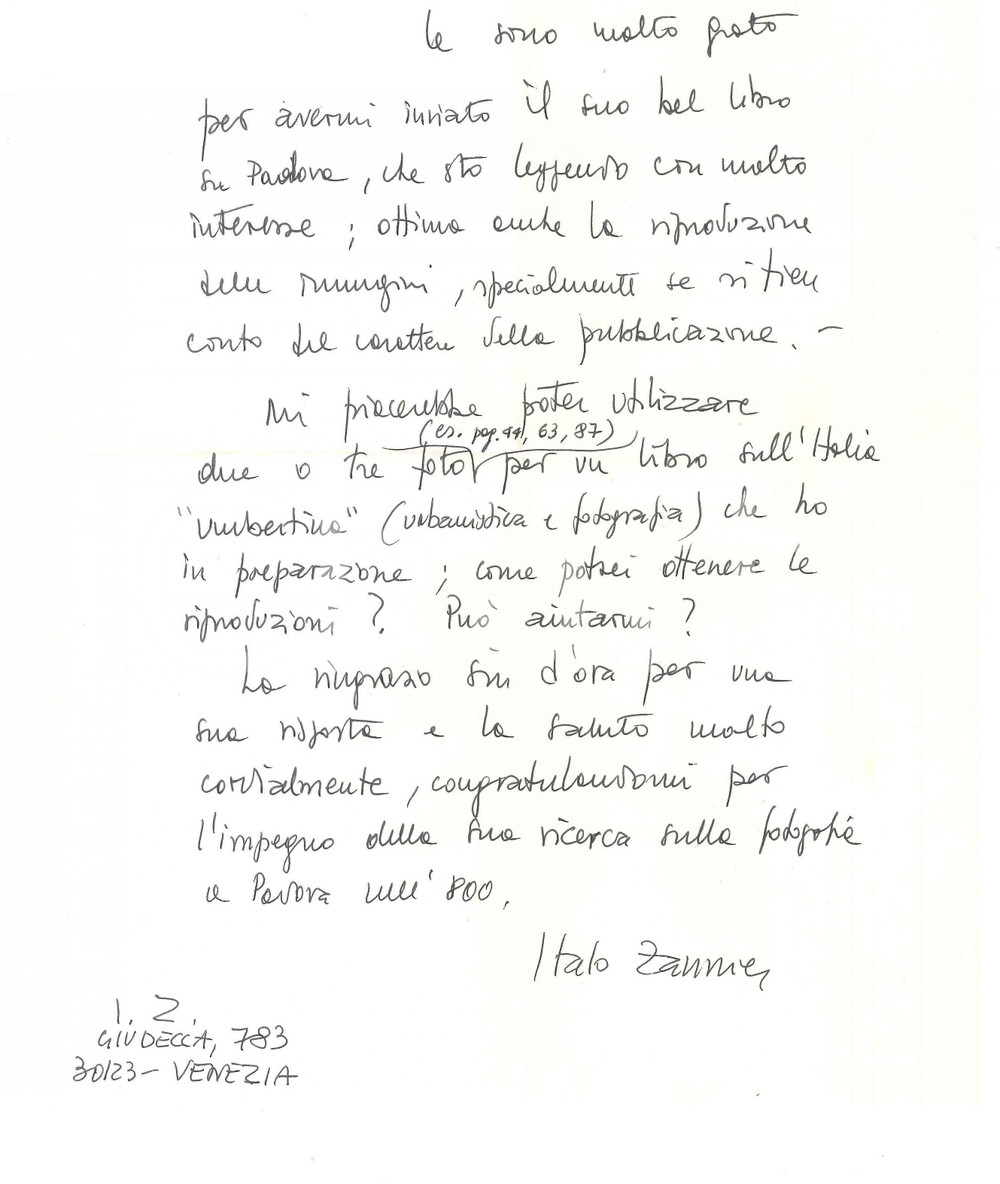 Le sono molto grato
per avermi inviato il suo bel libro
su Padova, che sto leggendo con molto
interesse ; ottima anche la riproduzione
delle immagini, specialmente se si tien
conto del carattere della pubblicazione. –
Mi piacerebbe poter utilizzare
(es. pag. 44, 63, 87)
due o tre foto per un libro sull'Italia
"umbertina" (urbanistica e fotografia) che ho
in preparazione ; come potrei ottenere le
riproduzioni ? Può aiutarmi ?
La ringrazio sin d'ora per una
sua risposta e la saluto molto
cordialmente, congratulandomi per
l'impegno della sua ricerca sulla fotografia
a Padova nell'800.
Italo Zannier
I. Z.
GIUDECCA, 783
30123 – VENEZIA